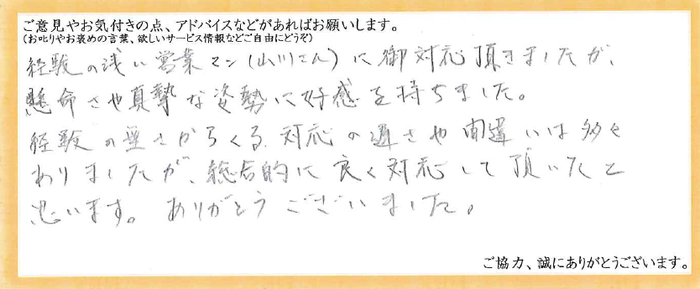 ご意見やお気付きの点、アドバイスなどがあればお願いします。
(お叱りやお褒めの言葉、欲しいサービス情報などご自由にどうぞ)
経験の浅い営業マン(山川さん)に御対応頂きましたが、
懸命さや真摯な姿勢に好感を持ちました。
経験の無さからくる対応の遅さや間違いは多々
ありましたが、総合的に良く対応して頂いたと
思います。ありがとうございました。
ご協力、誠にありがとうございます。